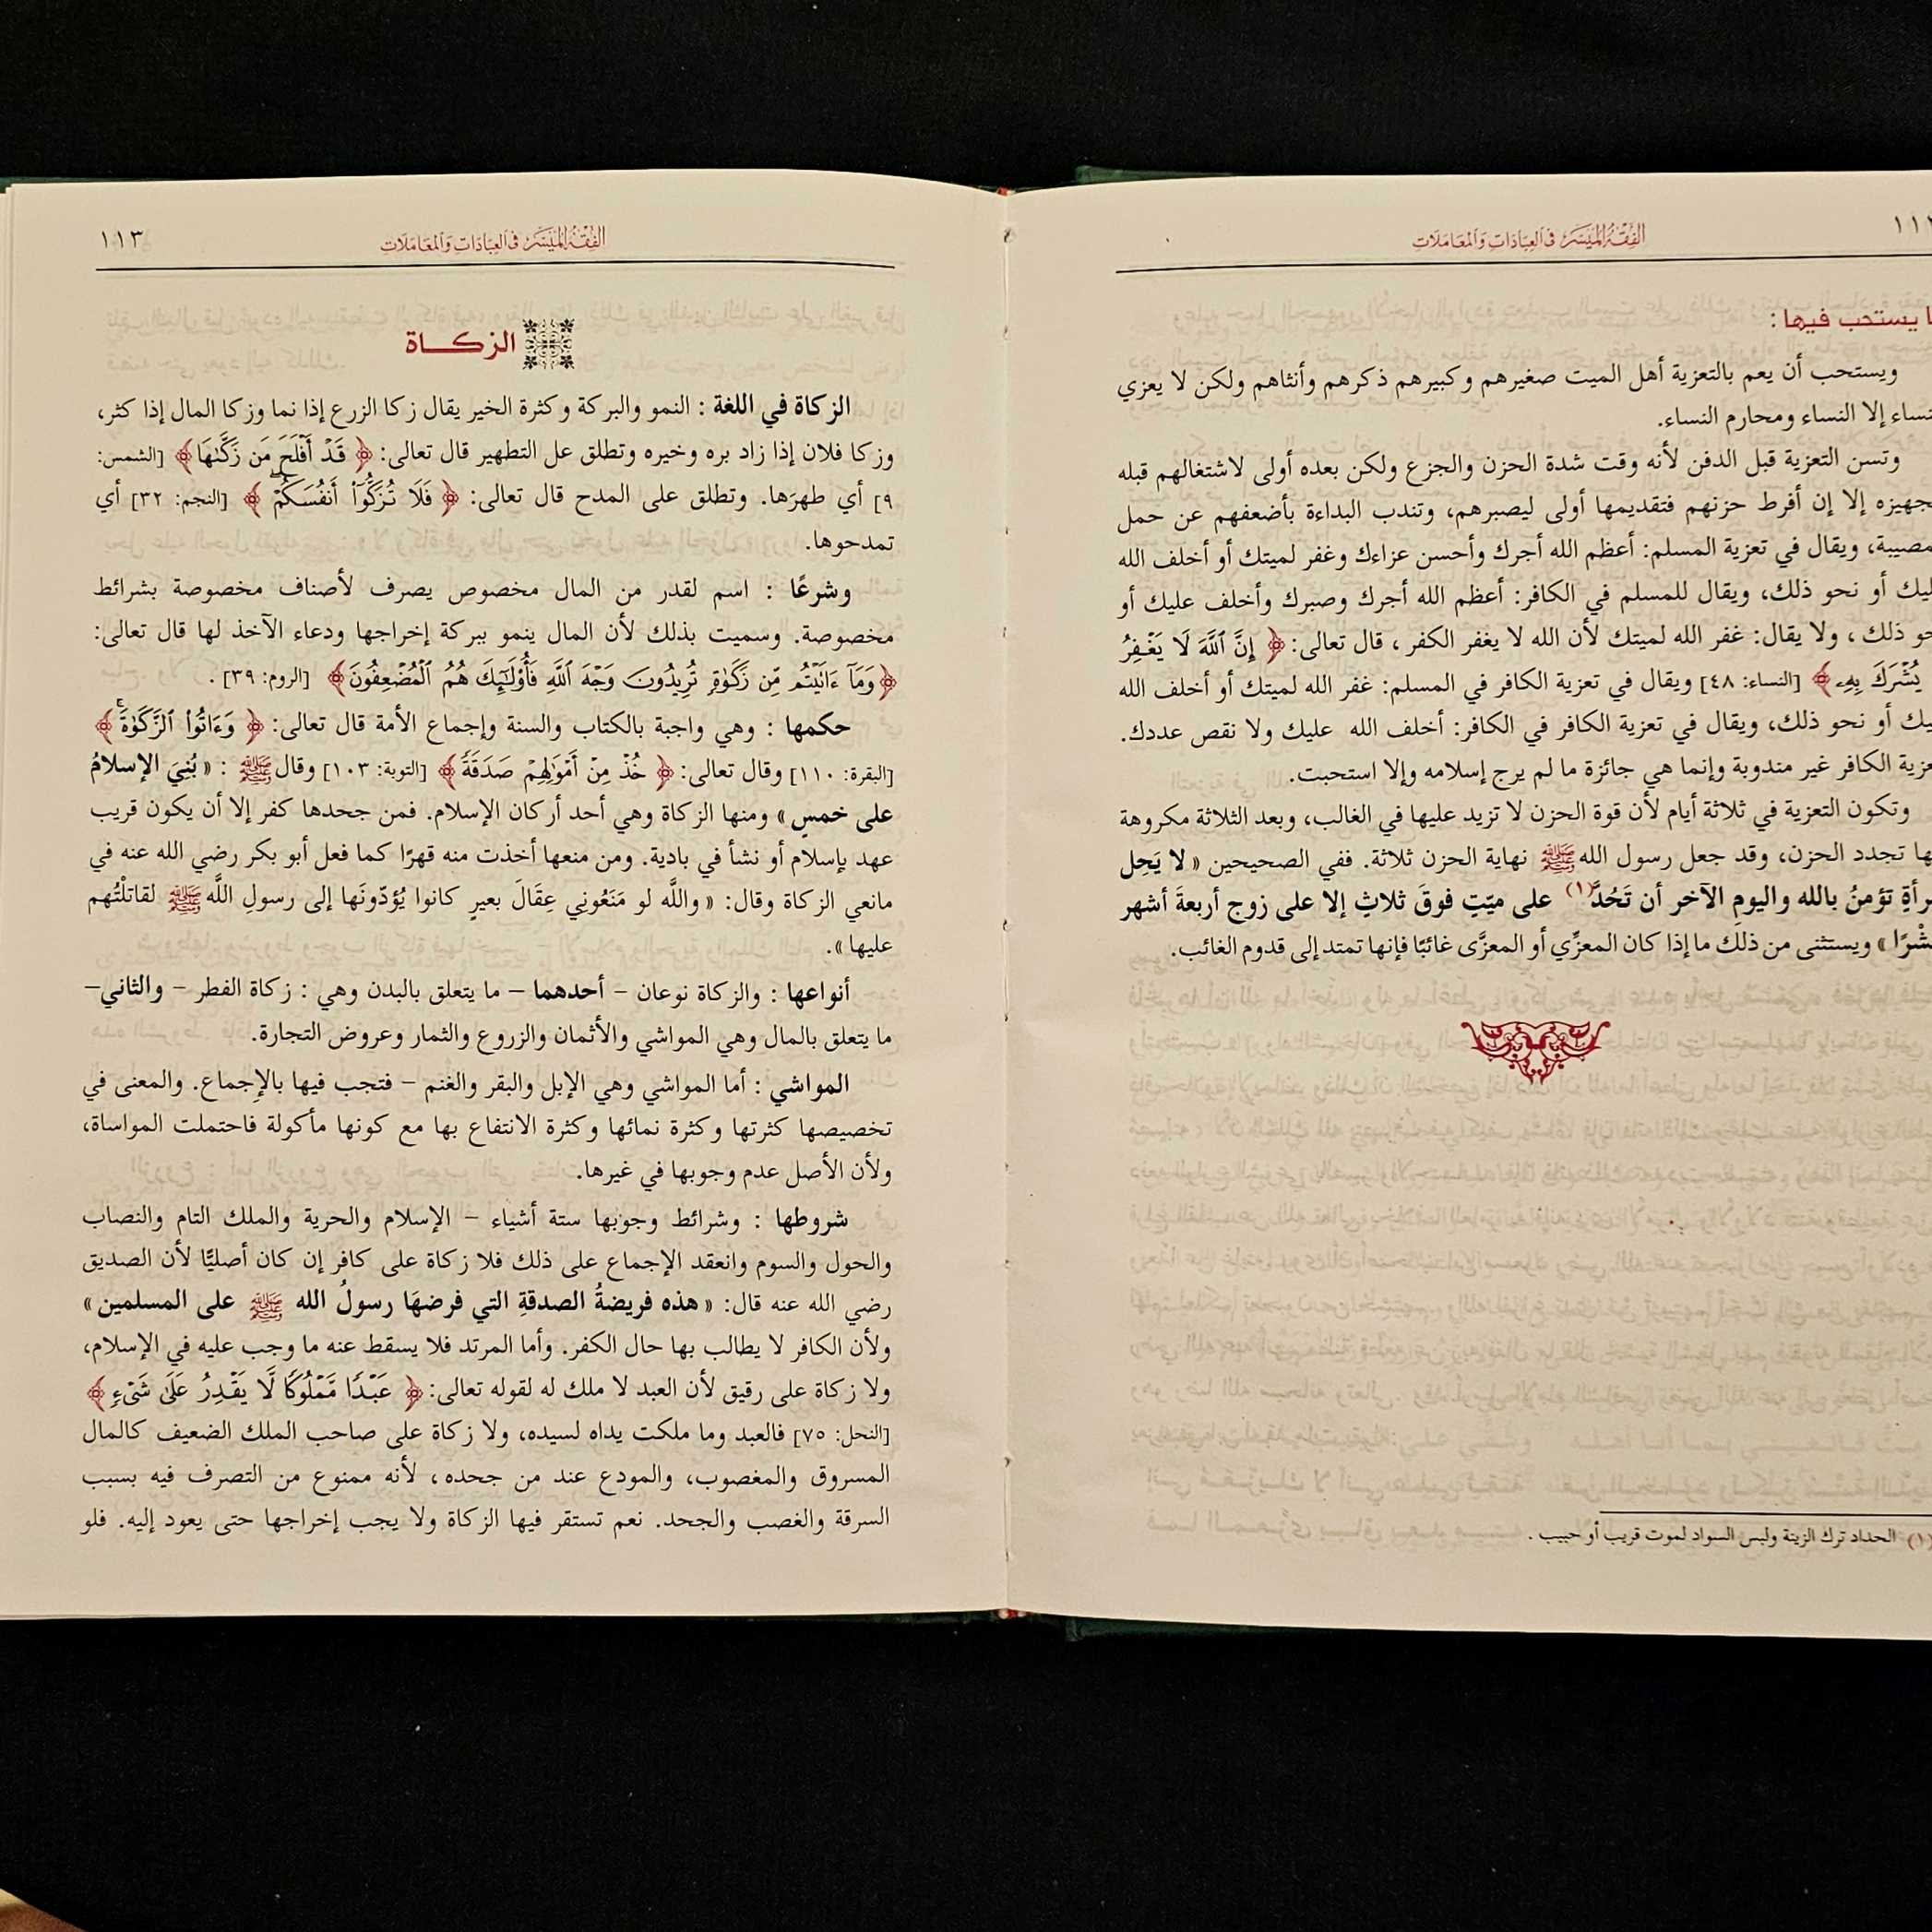 الفِقْهُ المُيَسَّر فى العِبَادَاتِ وَالمُعَامَلَاتِ
يستحب فيها :
ويستحب أن يعم بالتعزية أهل الميت صغيرهم وكبيرهم ذكرهم وأنثاهم ولكن لا يعزي
إلا النساء ومحارم النساء.
وتسن التعزية قبل الدفن لأنه وقت شدة الحزن والجزع ولكن بعده أولى لاشتغالهم قبله
إلا إن أفرط حزنهم فتقديمها أولى ليصبرهم، وتندب البداءة بأضعفهم عن حمل
ويقال في تعزية المسلم: أعظم الله أجرك وأحسن عزاءك وغفر لميتك أو أخلف الله
أو نحو ذلك، ويقال للمسلم في الكافر: أعظم الله أجرك وصبرك وأخلف عليك أو
ذلك ، ولا يقال: غفر الله لميتك لأن الله لا يغفر الكفر ، قال تعالى: ﴿ إِنَّ ٱللَّهَ لَا يَغْفِرُ
يُشْرَكَ بِهِۦ ﴾ [النساء: ٤٨] ويقال في تعزية الكافر في المسلم: غفر الله لميتك أو أخلف الله
أو نحو ذلك، ويقال في تعزية الكافر في الكافر: أخلف الله عليك ولا نقص عددك.
الكافر غير مندوبة وإنما هي جائزة ما لم يرج إسلامه وإلا استحبت.
وتكون التعزية في ثلاثة أيام لأن قوة الحزن لا تزيد عليها في الغالب، وبعد الثلاثة مكروهة
تجدد الحزن، وقد جعل رسول الله ﷺ نهاية الحزن ثلاثة. ففي الصحيحين « لا يَحِل
تؤمنُ بالله واليوم الآخر أن تَحُدَّ(١) على ميّتٍ فوقَ ثلاثٍ إلا على زوج أربعةَ أشهر
» ويستثنى من ذلك ما إذا كان المعزِّي أو المعزَّى غائبًا فإنها تمتد إلى قدوم الغائب.
(١) الحداد ترك الزينة ولبس السواد لموت قريب أو حبيب .
الفِقْهُ المُيَسَّر فى العِبَادَاتِ وَالمُعَامَلَاتِ ١١٣
الزكــاة
الزكاة في اللغة : النمو والبركة وكثرة الخير يقال زكا الزرع إذا نما وزكا المال إذا كثر،
وزكا فلان إذا زاد بره وخيره وتطلق عل التطهير قال تعالى: ﴿ قَدْ أَفْلَحَ مَن زَكَّىٰهَا ﴾ [الشمس:
٩] أي طهرَها. وتطلق على المدح قال تعالى: ﴿ فَلَا تُزَكُّوٓا۟ أَنفُسَكُمْ ۖ ﴾ [النجم: ٣٢] أي
تمدحوها.
وشرعًا : اسم لقدر من المال مخصوص يصرف لأصناف مخصوصة بشرائط
مخصوصة. وسميت بذلك لأن المال ينمو ببركة إخراجها ودعاء الآخذ لها قال تعالى:
﴿ وَمَآ ءَاتَيْتُم مِّن زَكَوٰةٍ تُرِيدُونَ وَجْهَ ٱللَّهِ فَأُو۟لَٰٓئِكَ هُمُ ٱلْمُضْعِفُونَ ﴾ [الروم: ٣٩] .
حكمها : وهي واجبة بالكتاب والسنة وإجماع الأمة قال تعالى: ﴿ وَءَاتُوا۟ ٱلزَّكَوٰةَ ۚ ﴾
[البقرة: ١١٠] وقال تعالى: ﴿ خُذْ مِنْ أَمْوَٰلِهِمْ صَدَقَةً ﴾ [التوبة: ١٠٣] وقال ﷺ : « بُنِيَ الإسلامُ
على خمسٍ » ومنها الزكاة وهي أحد أركان الإسلام. فمن جحدها كفر إلا أن يكون قريب
عهد بإسلام أو نشأ في بادية. ومن منعها أخذت منه قهرًا كما فعل أبو بكر رضي الله عنه في
مانعي الزكاة وقال: « واللَّه لو مَنَعُوني عِقَالَ بعيرٍ كانوا يُؤدّونَها إلى رسولِ اللَّه ﷺ لقاتلْتُهم
عليها ».
أنواعها : والزكاة نوعان – أحدهما – ما يتعلق بالبدن وهي : زكاة الفطر – والثاني–
ما يتعلق بالمال وهي المواشي والأثمان والزروع والثمار وعروض التجارة.
المواشي : أما المواشي وهي الإبل والبقر والغنم – فتجب فيها بالإجماع. والمعنى في
تخصيصها كثرتها وكثرة نمائها وكثرة الانتفاع بها مع كونها مأكولة فاحتملت المواساة،
ولأن الأصل عدم وجوبها في غيرها.
شروطها : وشرائط وجوبها ستة أشياء – الإسلام والحرية والملك التام والنصاب
والحول والسوم وانعقد الإجماع على ذلك فلا زكاة على كافر إن كان أصليًّا لأن الصديق
رضي الله عنه قال: « هذه فريضةُ الصدقةِ التي فرضهَا رسولُ الله ﷺ على المسلمين »
ولأن الكافر لا يطالب بها حال الكفر. وأما المرتد فلا يسقط عنه ما وجب عليه في الإسلام،
ولا زكاة على رقيق لأن العبد لا ملك له لقوله تعالى: ﴿ عَبْدًا مَّمْلُوكًا لَّا يَقْدِرُ عَلَىٰ شَىْءٍ ﴾
[النحل: ٧٥] فالعبد وما ملكت يداه لسيده، ولا زكاة على صاحب الملك الضعيف كالمال
المسروق والمغصوب، والمودع عند من جحده، لأنه ممنوع من التصرف فيه بسبب
السرقة والغصب والجحد. نعم تستقر فيها الزكاة ولا يجب إخراجها حتى يعود إليه. فلو